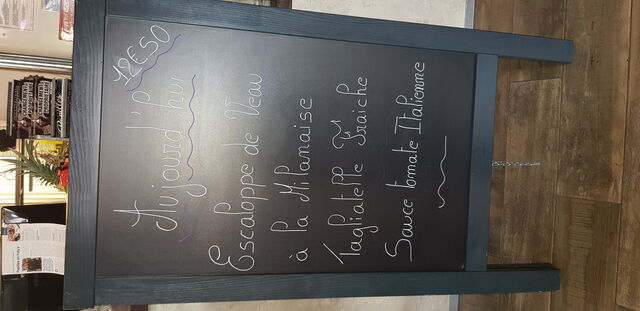 12€50
Aujourd'hui
Escaloppe de Veau
à la Milanaise
Tagliatelle Fraiche
Sauce tomate Italienne